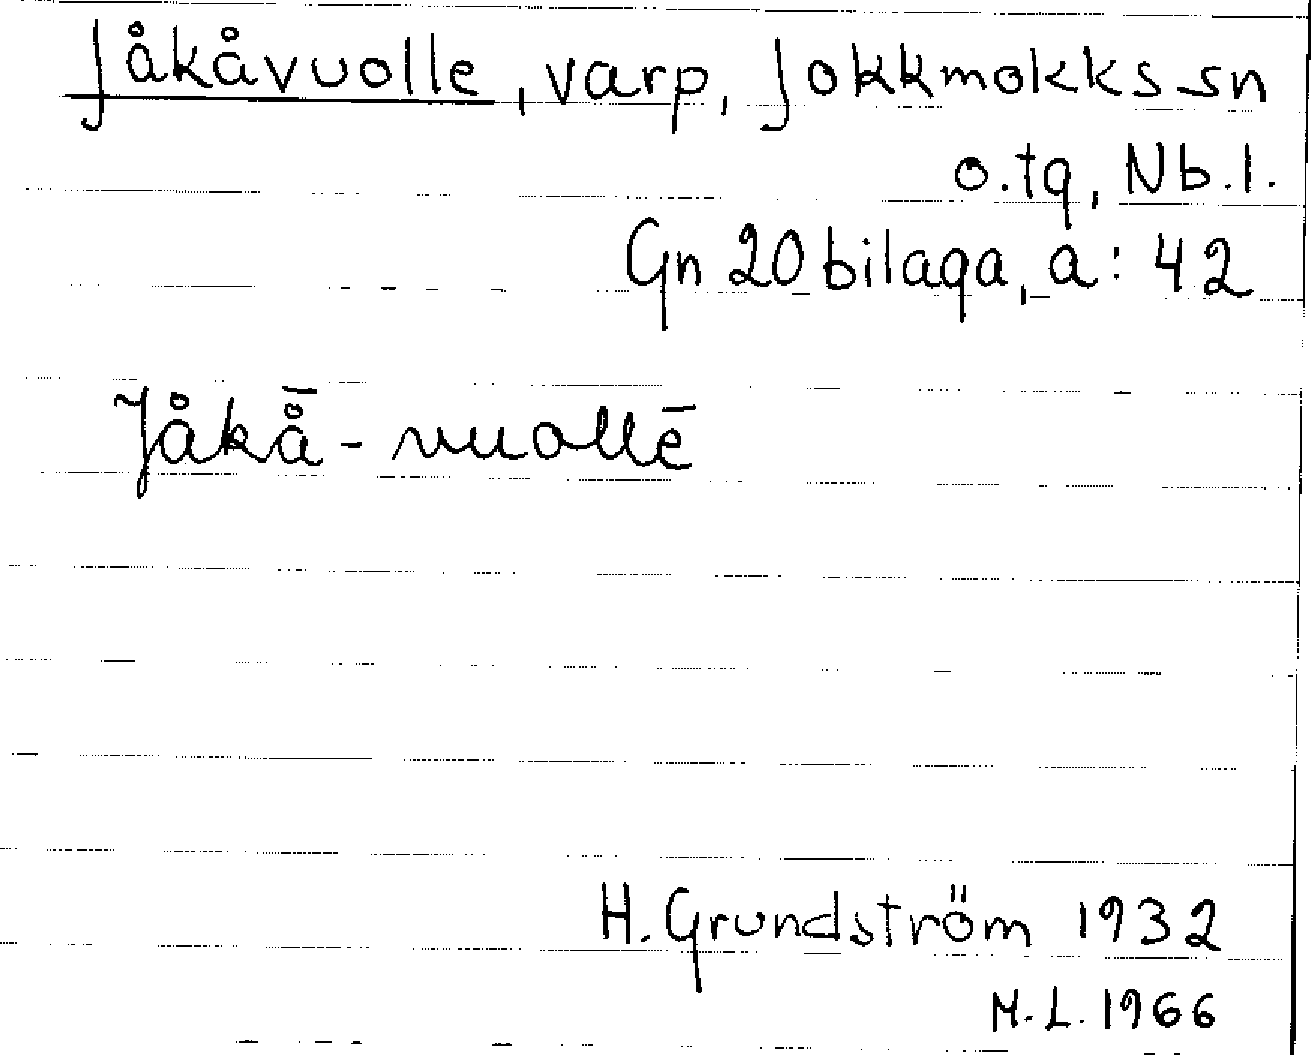 Jåkåvuolle, varp, Jokkmokks sn
o.tg, Nb.l.
Gn 20 bilaga, a: 42
Jåkå̄-vuollē
H. Grundström 1932
M.L. 1966